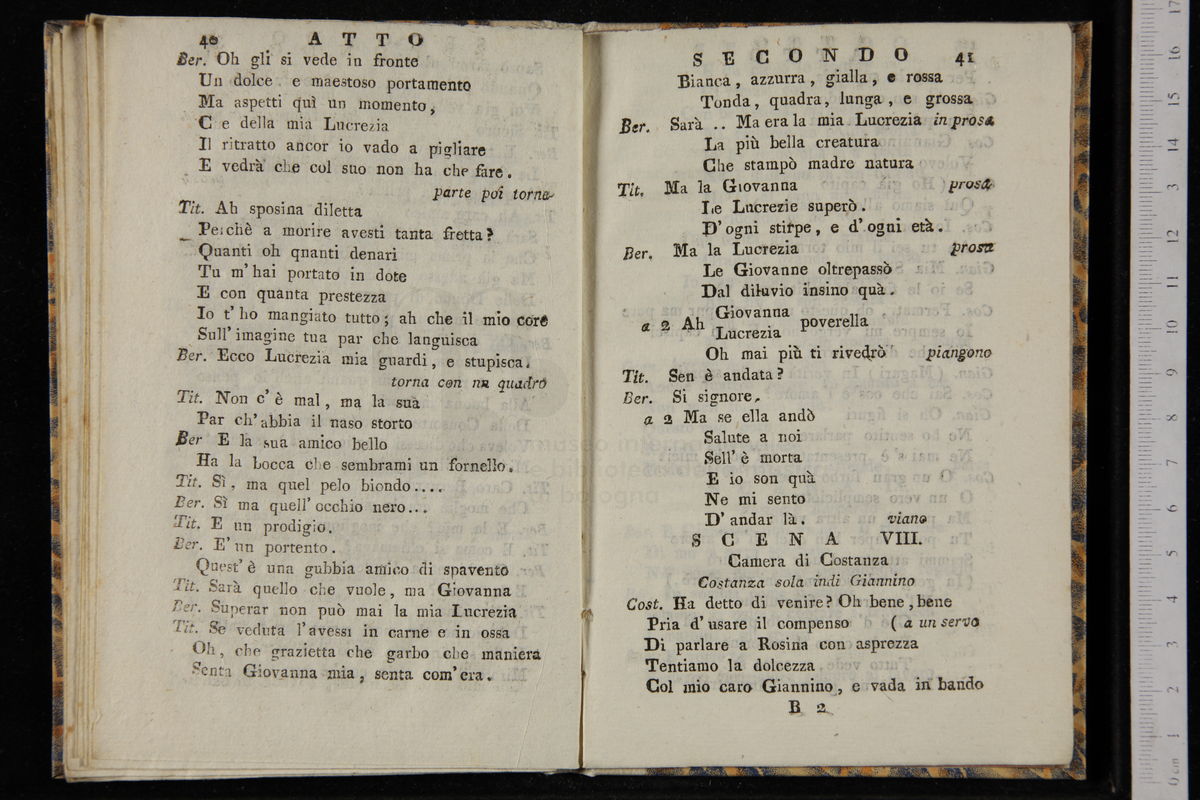 40 ATTO
Ber. Oh gli si vede in fronte
Un dolce e maestoso portamento
Ma aspetti quì un momento,
C e della mia Lucrezia
Il ritratto ancor io vado a pigliare
E vedrà che col suo non ha che fare.
parte poi torna
Tit. Ah sposina diletta
Perchè a morire avesti tanta fretta?
Quanti oh qnanti denari
Tu m'hai portato in dote
E con quanta prestezza
Io t'ho mangiato tutto; ah che il mio core
Sull' imagine tua par che languisca
Ber. Ecco Lucrezia mia guardi, e stupisca.
torna con nn quadro
Tit. Non c'è mal, ma la sua
Par ch'abbia il naso storto
Ber E la sua amico bello
Ha la bocca che sembrami un fornello.
Tit. Sì, ma quel pelo biondo....
Ber. Sì ma quell' occhio nero...
Tit. E un prodigio.
Ber. E' un portento.
Quest' è una gubbia amico di spavento
Tit. Sarà quello che vuole, ma Giovanna
Ber. Superar non può mai la mia Lucrezia
Tit. Se veduta l'avessi in carne e in ossa
Oh, che grazietta che garbo che maniera
Senta Giovanna mia, senta com'era.
SECONDO 41
Bianca, azzurra, gialla, e rossa
Tonda, quadra, lunga, e grossa
Ber. Sarà .. Ma era la mia Lucrezia in prosa
La più bella creatura
Che stampò madre natura
Tit. Ma la Giovanna prosa
Le Lucrezie superò.
D'ogni stirpe, e d'ogni età.
Ber. Ma la Lucrezia prosa
Le Giovanne oltrepassò
Dal diluvio insino quà.
a 2 Ah Giovanna poverella
Lucrezia
Oh mai più ti rivedrò piangono
Tit. Sen è andata?
Ber. Si signore.
a 2 Ma se ella andò
Salute a noi
Sell' è morta
E io son quà
Ne mi sento
D' andar là. viano
SCENA VIII.
Camera di Costanza
Costanza sola indi Giannino
Cost. Ha detto di venire? Oh bene, bene
Pria d'usare il compenso ( a un servo
Di parlare a Rosina con asprezza
Tentiamo la dolcezza
Col mio caro Giannino, e vada in bando
B 2